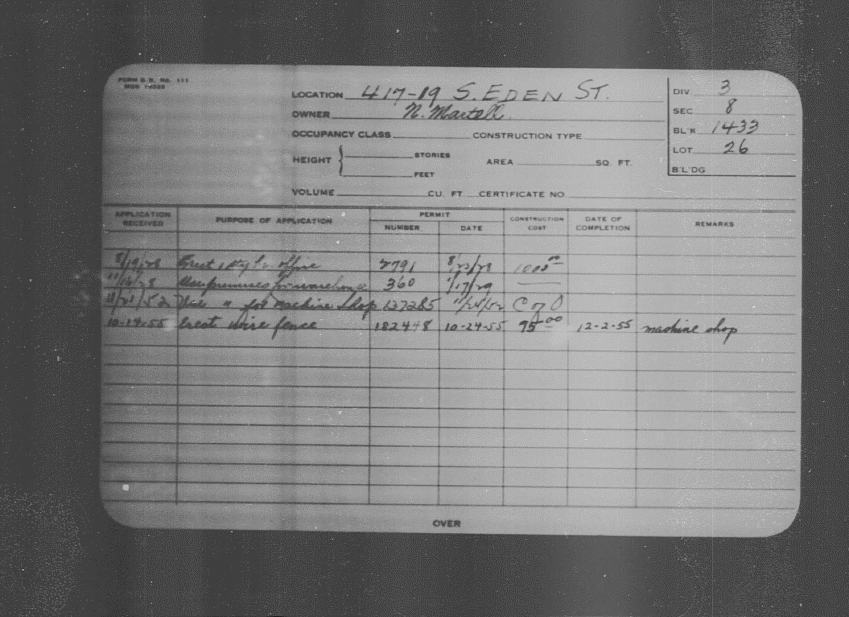 FORM B. B. NO. 111
LOCATION 417-19 S. EDEN ST.
OWNER N. Martell
OCCUPANCY CLASS CONSTRUCTION TYPE
HEIGHT STORIES FEET AREA SQ. FT.
VOLUME CU. FT. CERTIFICATE NO
DIV 3
SEC 8
BL'K 1433
LOT 26
B'L'DG
APPLICATION RECEIVED PURPOSE OF APPLICATION PERMIT NUMBER DATE CONSTRUCTION COST DATE OF COMPLETION REMARKS
8/19/28 Erect 1 sty office 2791 8/23/28 1000 00
11/16/28 Use premises for warehouse 360 1/17/29
11/21/52 Use " for machine shop 137285 11/24/52 C of O
10-19-55 Erect wire fence 182448 10-24-55 95 00 12-2-55 machine shop
OVER